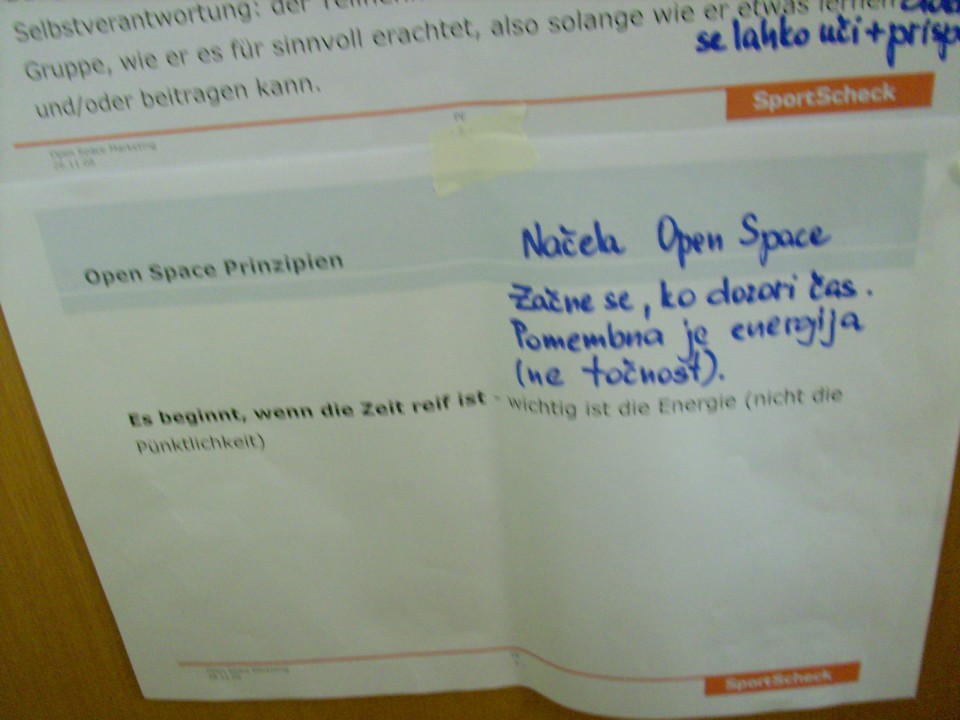 Selbstverantwortung: der
Gruppe, wie er es für sinnvoll erachtet, also solange wie er etwas lernen
se lahko uči + prisp
und/oder beitragen kann.
SportScheck
PE
Open Space Marketing
Open Space Prinzipien
Načela Open Space
Začne se, ko dozori čas.
Pomembna je energija
(ne točnost).
Es beginnt, wenn die Zeit reif ist - wichtig ist die Energie (nicht die
Pünktlichkeit)
Open Space Marketing
SportScheck